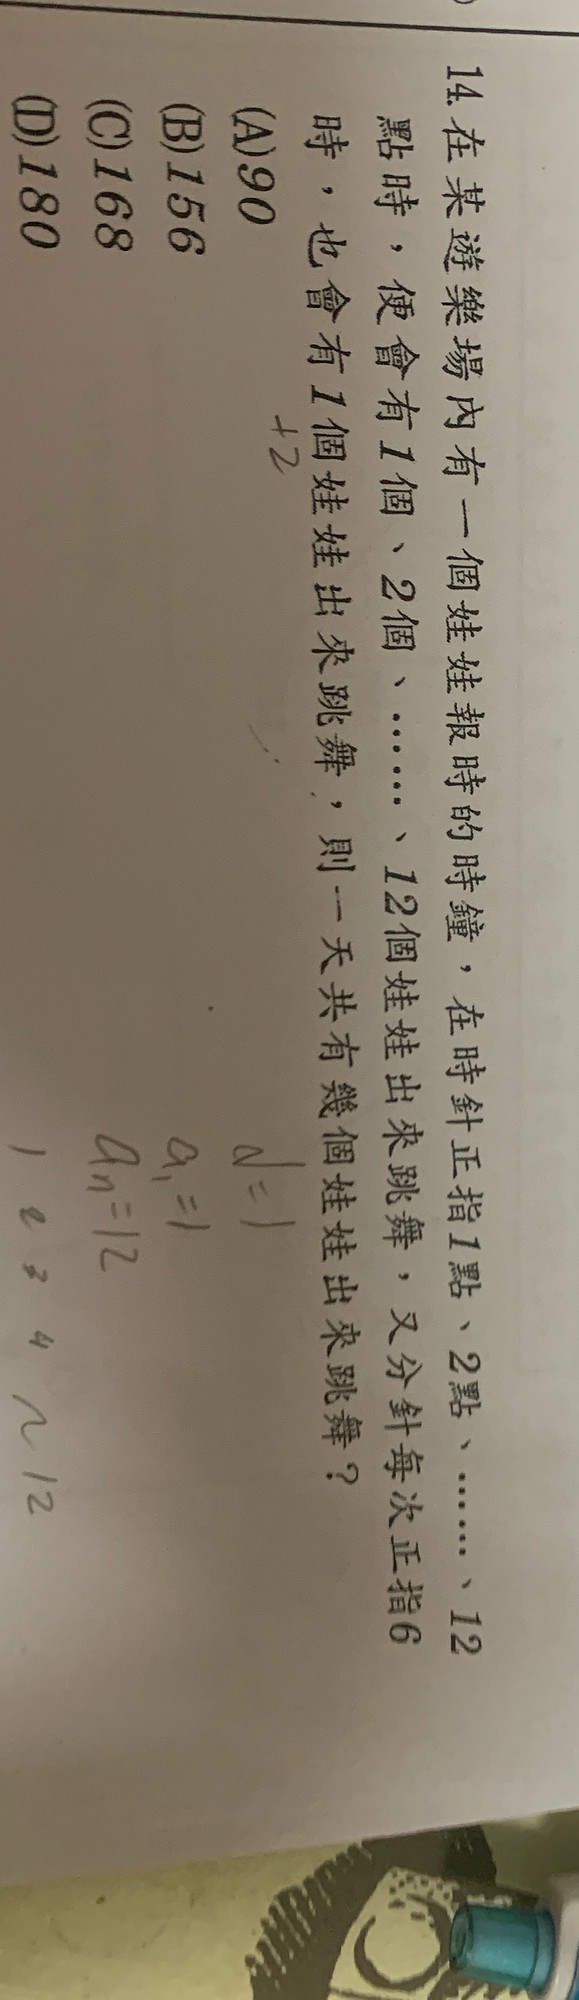 14.在某遊樂場內有一個娃娃報時的時鐘，在時針正指1點、2點、……、12
點時，便會有1個、2個、……、12個娃娃出來跳舞，又分針每次正指6
時，也會有1個娃娃出來跳舞，則一天共有幾個娃娃出來跳舞？
+2
(A)90
(B)156
(C)168
(D)180
d=1
a₁=1
aₙ=12
1 2 3 4 ~ 12